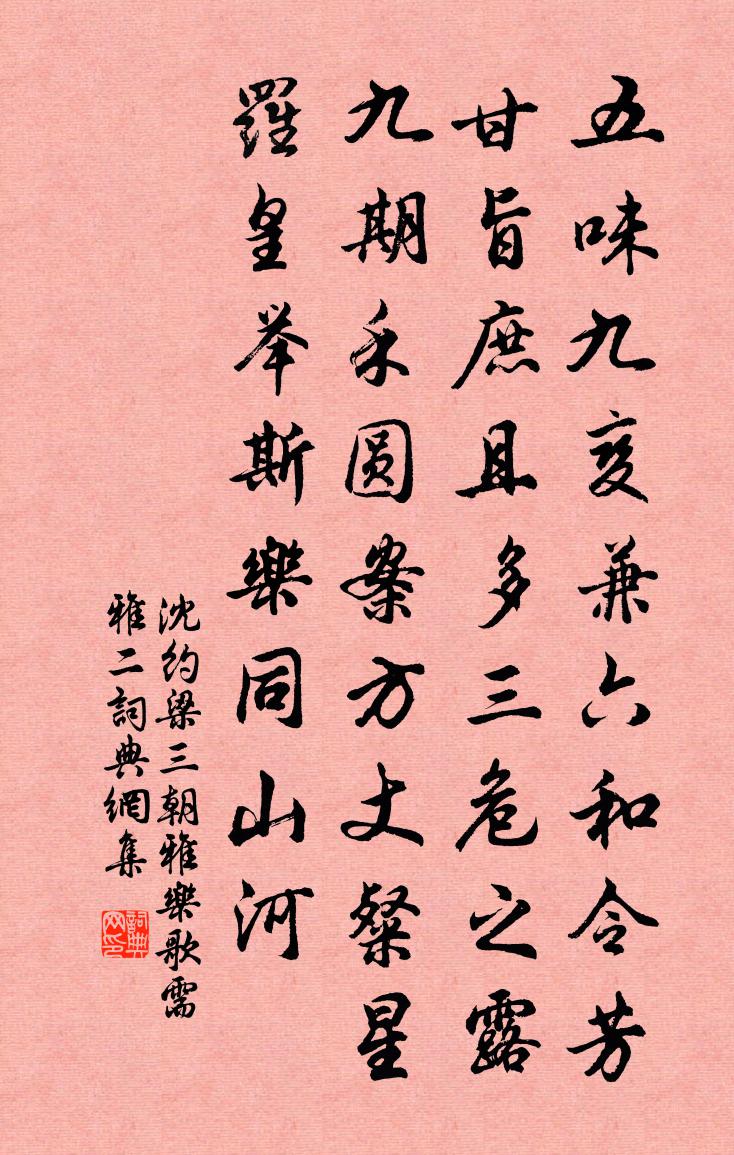 五味九变兼六和令芳
甘旨庶且多三危之露
九期禾圆案方丈粲星
羅皇举斯樂同山河
沈约梁三朝雅樂歌需
雅二詞典網集
詞典网印